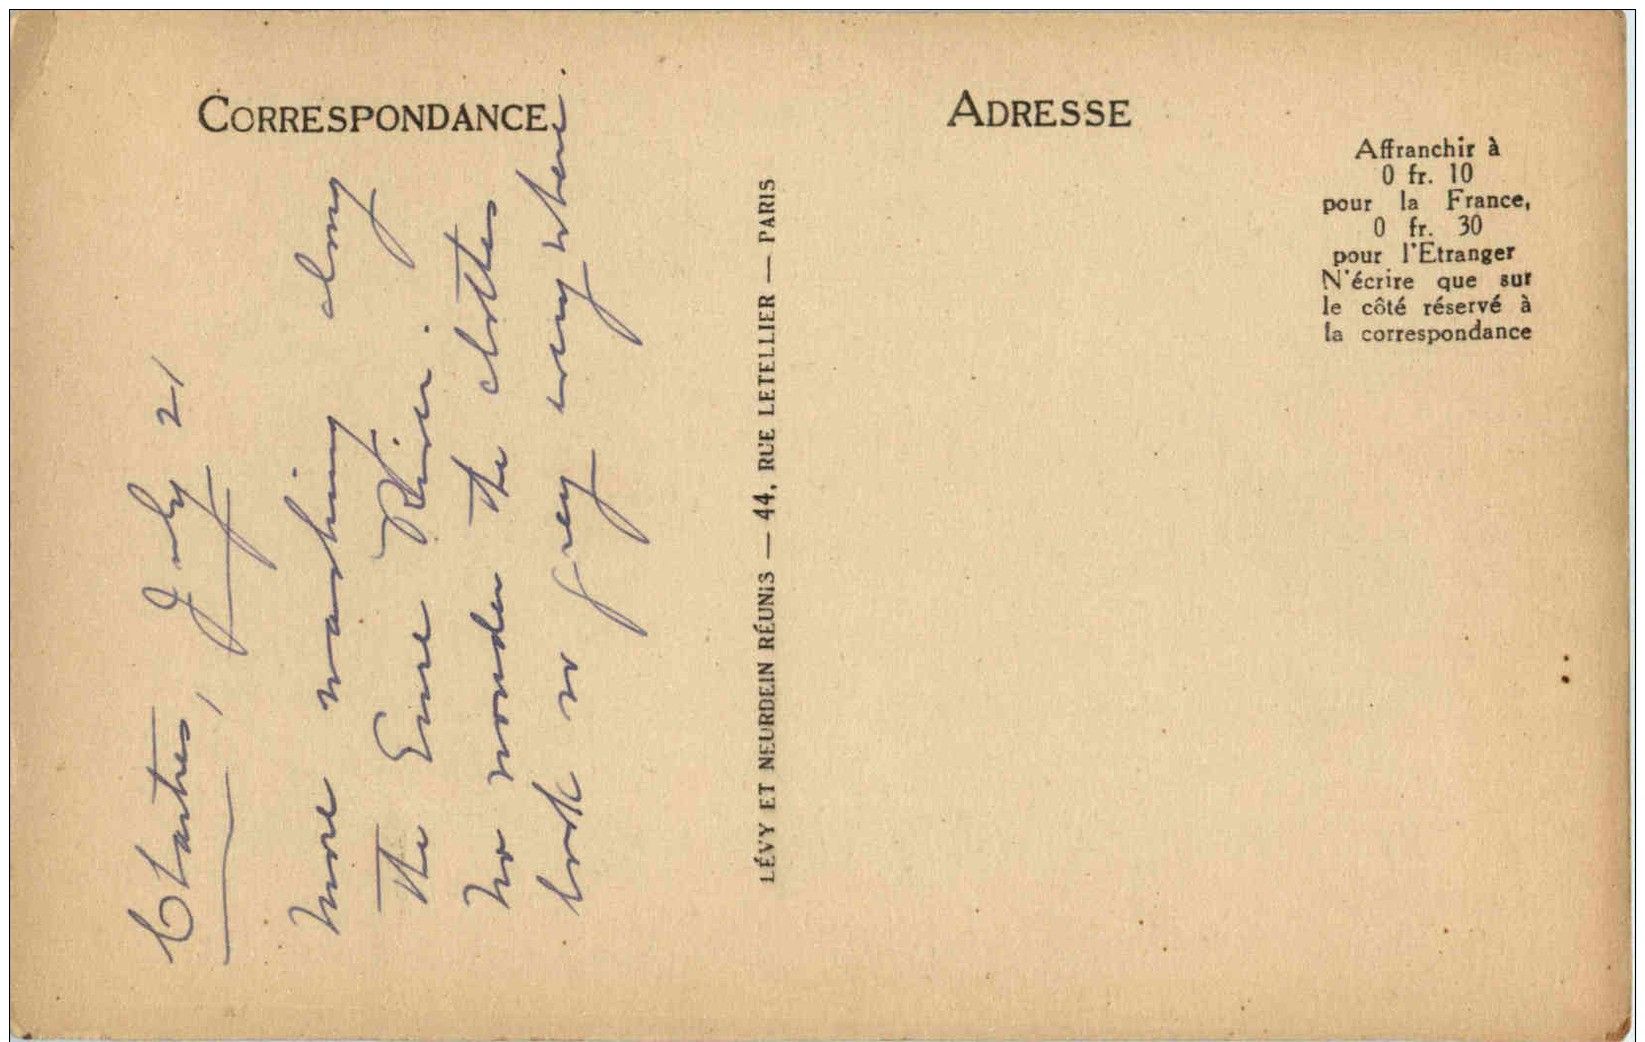 CORRESPONDANCE
Chartres, July 21
More washing along
the Eure River.
No wonder the clothes
look so grey everywhere.
LÉVY ET NEURDEIN RÉUNIS — 44, RUE LETELLIER — PARIS
ADRESSE
Affranchir à
0 fr. 10
pour la France,
0 fr. 30
pour l'Etranger
N'écrire que sur
le côté réservé à
la correspondance